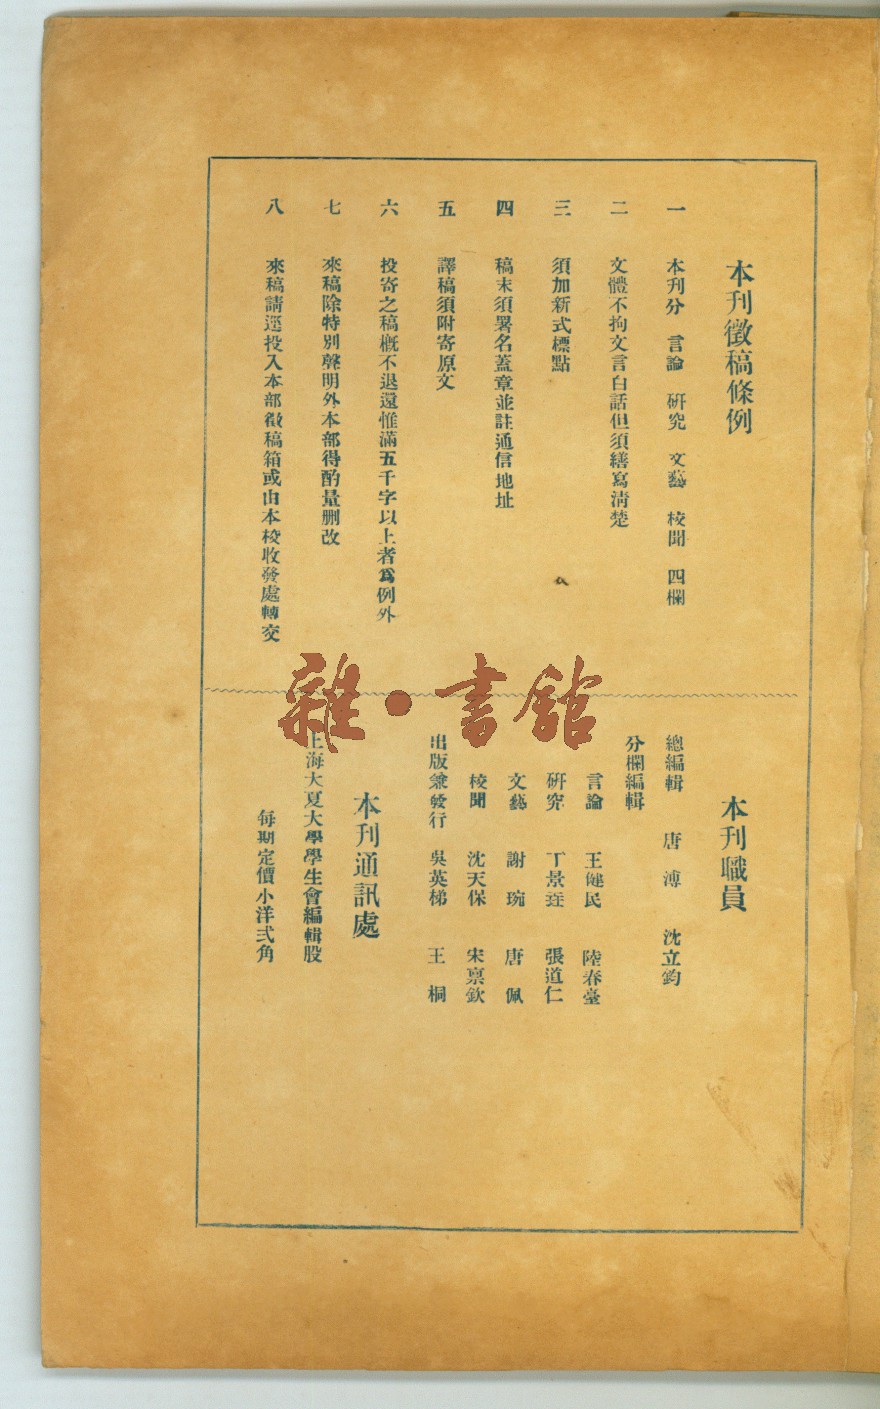 本刊徵稿條例
一 本刊分 言論 研究 文藝 校聞 四欄
二 文體不拘文言白話但須繕寫清楚
三 須加新式標點
四 稿末須署名蓋章並註通信地址
五 譯稿須附寄原文
六 投寄之稿概不退還惟滿五千字以上者爲例外
七 來稿除特別聲明外本部得酌量刪改
八 來稿請逕投入本部徵稿箱或由本校收發處轉交
雜·書館
本刊職員
總編輯 唐 溥 沈立鈞
分欄編輯
言論 王健民 陸春臺
研究 丁景 張道仁
文藝 謝琬 唐佩
校聞 沈天保 宋禀欽
出版兼發行 吳英梯 王桐
本刊通訊處
上海大夏大學學生會編輯股
每期定價小洋弍角